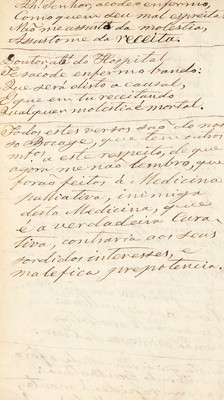 Ah! Senhor, acode o enfermo,
Como quem seu mal espreita
Não me assusta da molestia,
Assusto me da receita.
Doutor até do Hospital
Te sacode enfermo bando:
Que será disto a causal,
É que em tu receitando
Qualquer molestia é mortal.
Todos estes versos são do nos
so Bocage, que tem outros
mtos a este respeito, de que
agora me não lembro, que
forão feitos á Medicina
palliativa, inimiga
desta Medicina, que
é a verdadeira Cura-
tiva, contraria aos seus
sordidos interesses, e
malefica prepotencia.